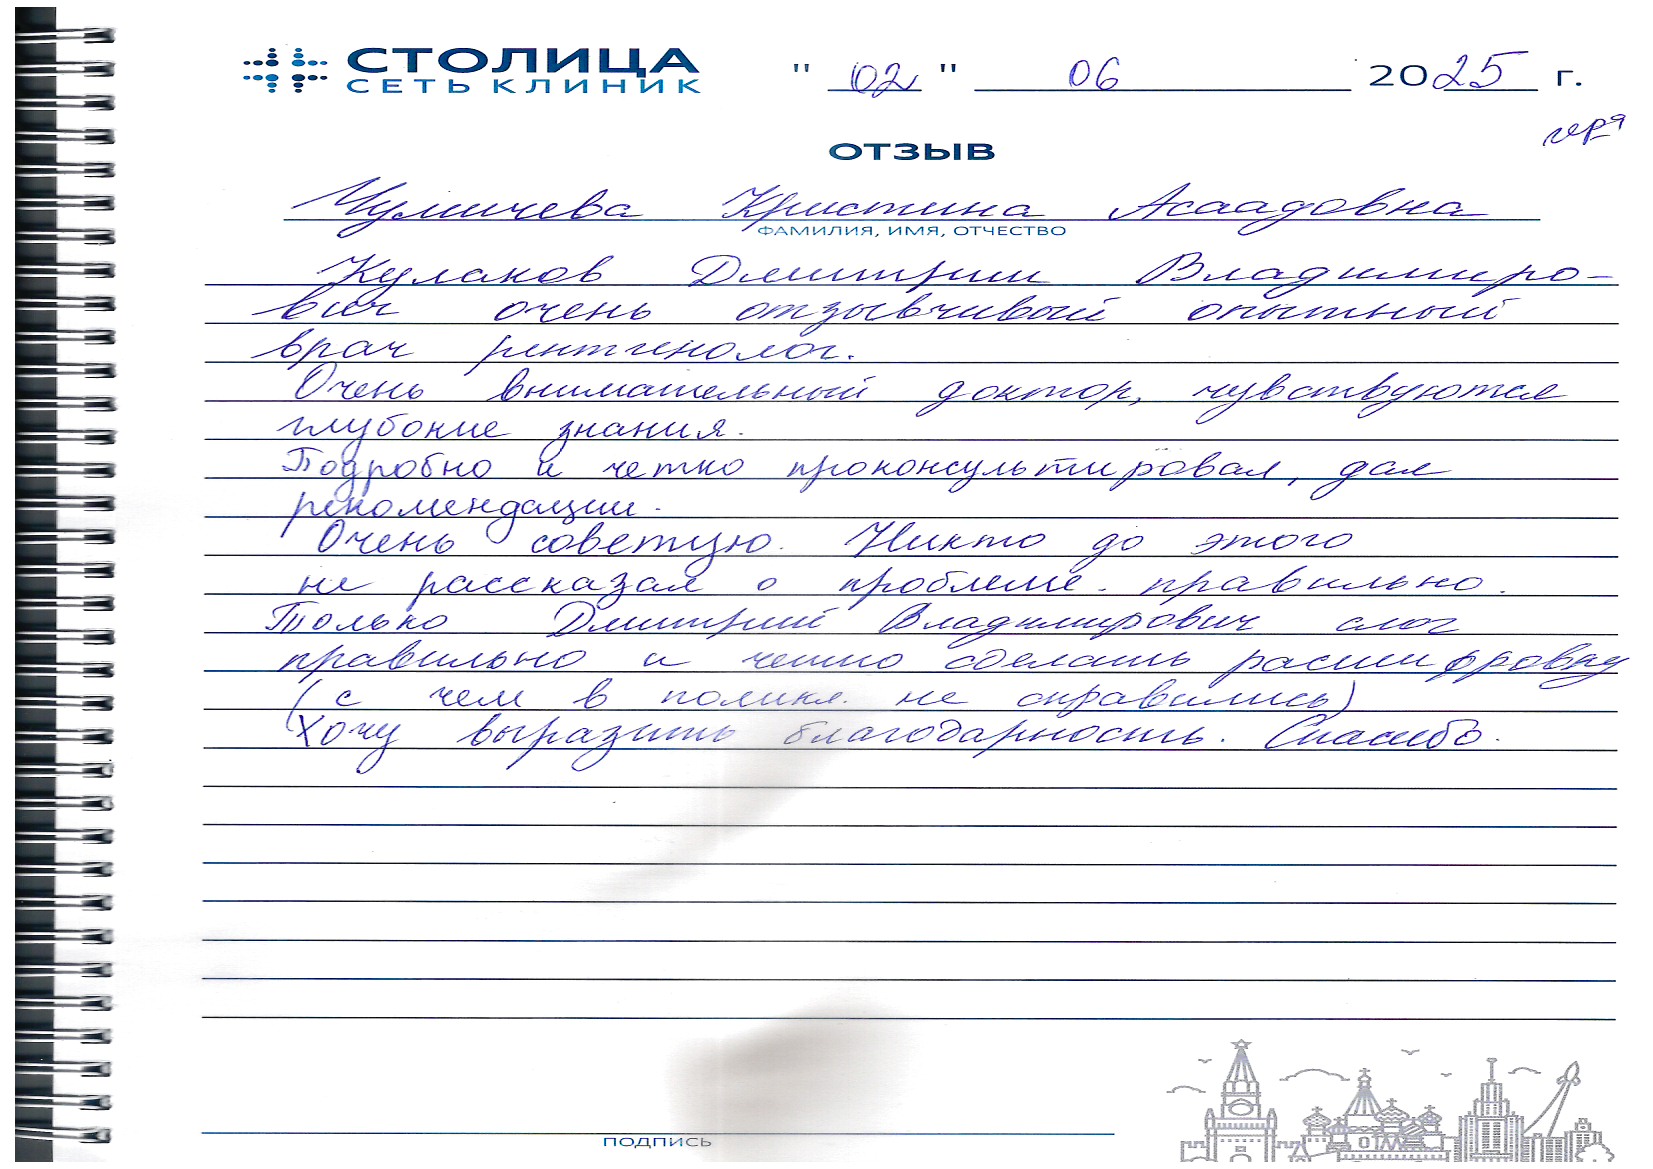 СТОЛИЦА
СЕТЬ КЛИНИК
" 02 " 06 2025 г.
ОТЗЫВ
Чумичева Кристина Асаадовна
ФАМИЛИЯ, ИМЯ, ОТЧЕСТВО
Кулаков Дмитрий Владимиро-
вич очень отзывчивый опытный
врач рентгенолог.
Очень внимательный доктор, чувствуются
глубокие знания.
Подробно и четко проконсультировал, дал
рекомендации.
Очень советую. Никто до этого
не рассказал о проблеме. правильно.
Только Дмитрий Владимирович смог
правильно и четко сделать расшифровку
(с чем в поликл. не справились)
Хочу выразить благодарность. Спасибо.
ПОДПИСЬ